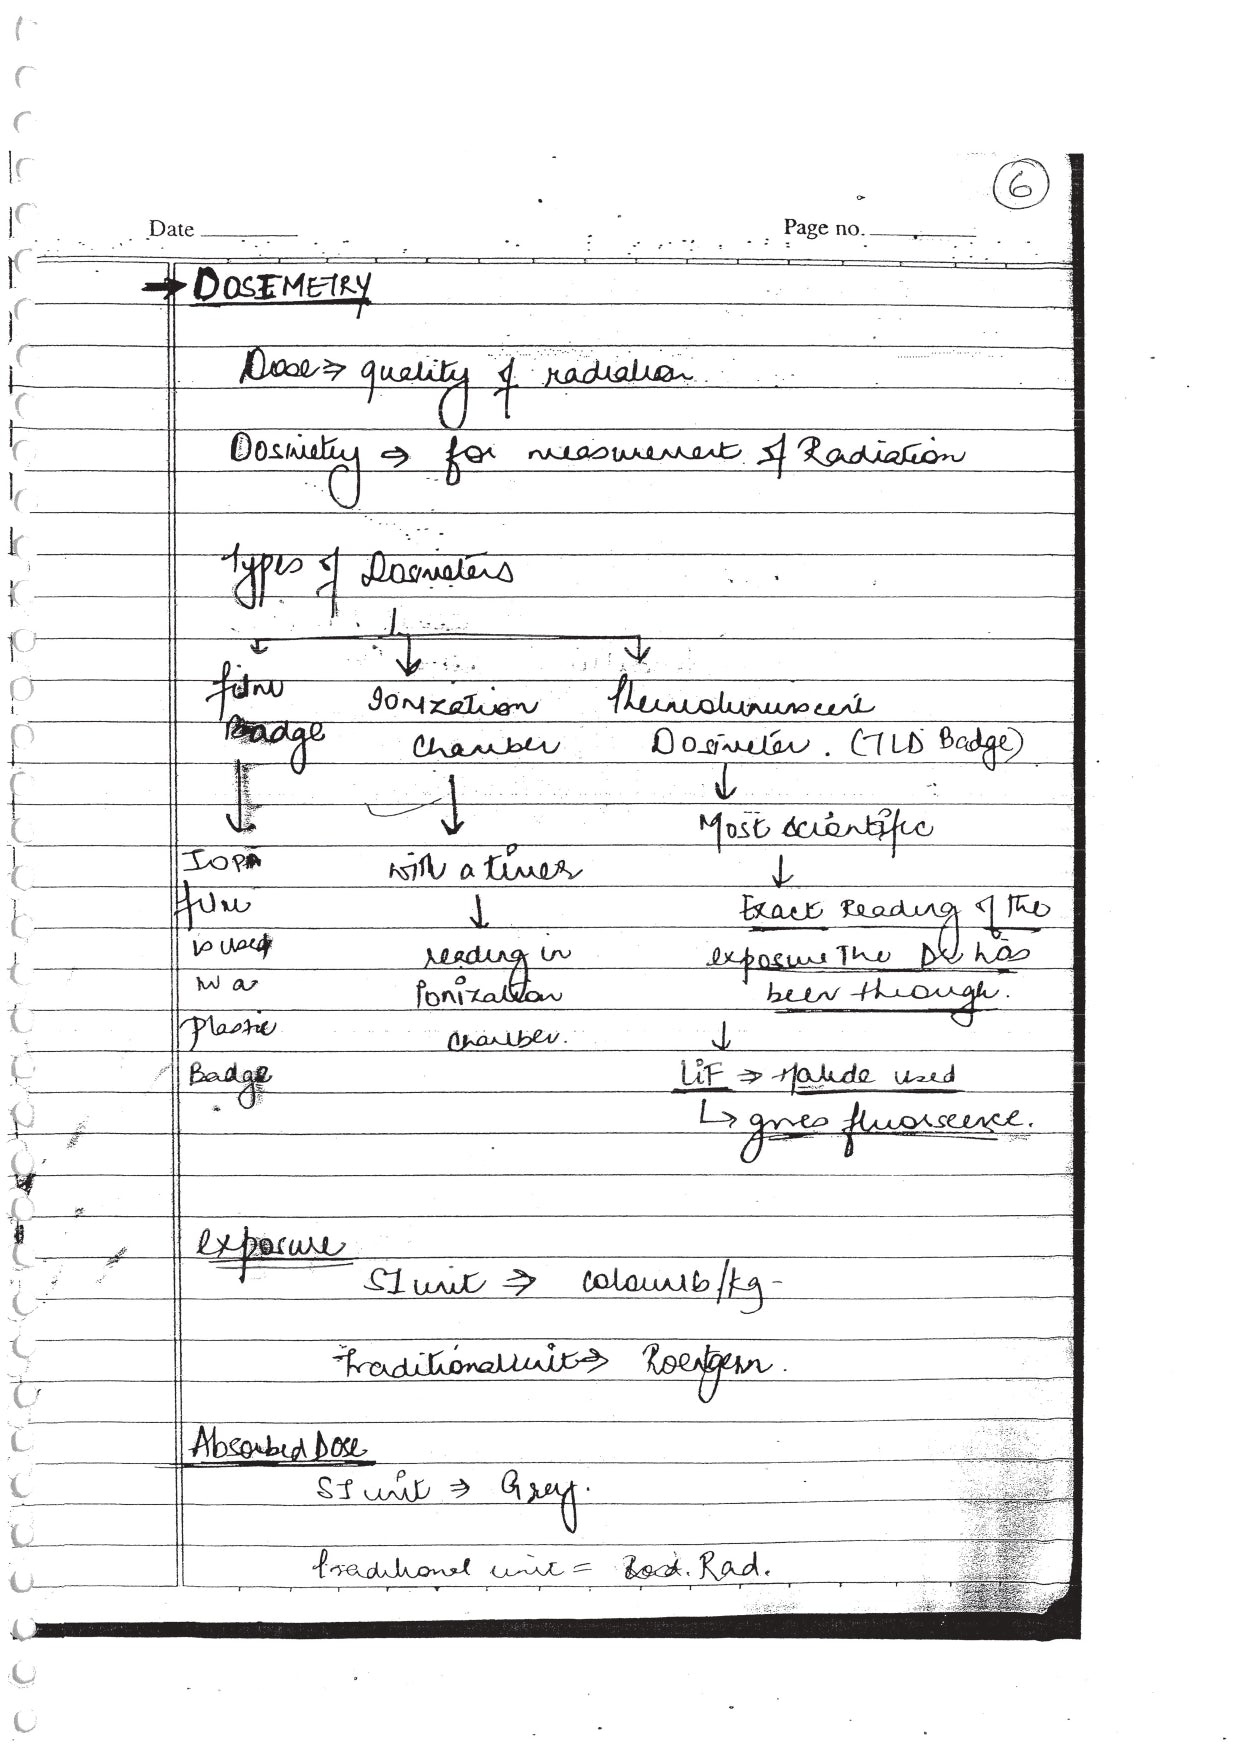 6
Date
Page no.
→ DOSEMETRY
Dose ⇒ quality of radiation
Dosimetry ⇒ for measurement of Radiation
Types of Dosimeters
film Badge
Ionization chamber
Thermoluminiscent Dosimeter. (TLD Badge)
↓
IOPA
film
is used
in a
Plastic
Badge
↓
with a timer
↓
reading in
Ionization
chamber.
↓
Most scientific
↓
Exact Reading of the
exposure The Dr has
been through.
↓
LiF ⇒ Halide used
↳ gives fluorscence.
exposure
SI unit ⇒ coloumb/kg
Traditional unit ⇒ Roentgen.
Absorbed Dose
SI unit ⇒ Grey.
Traditional unit = Rad.